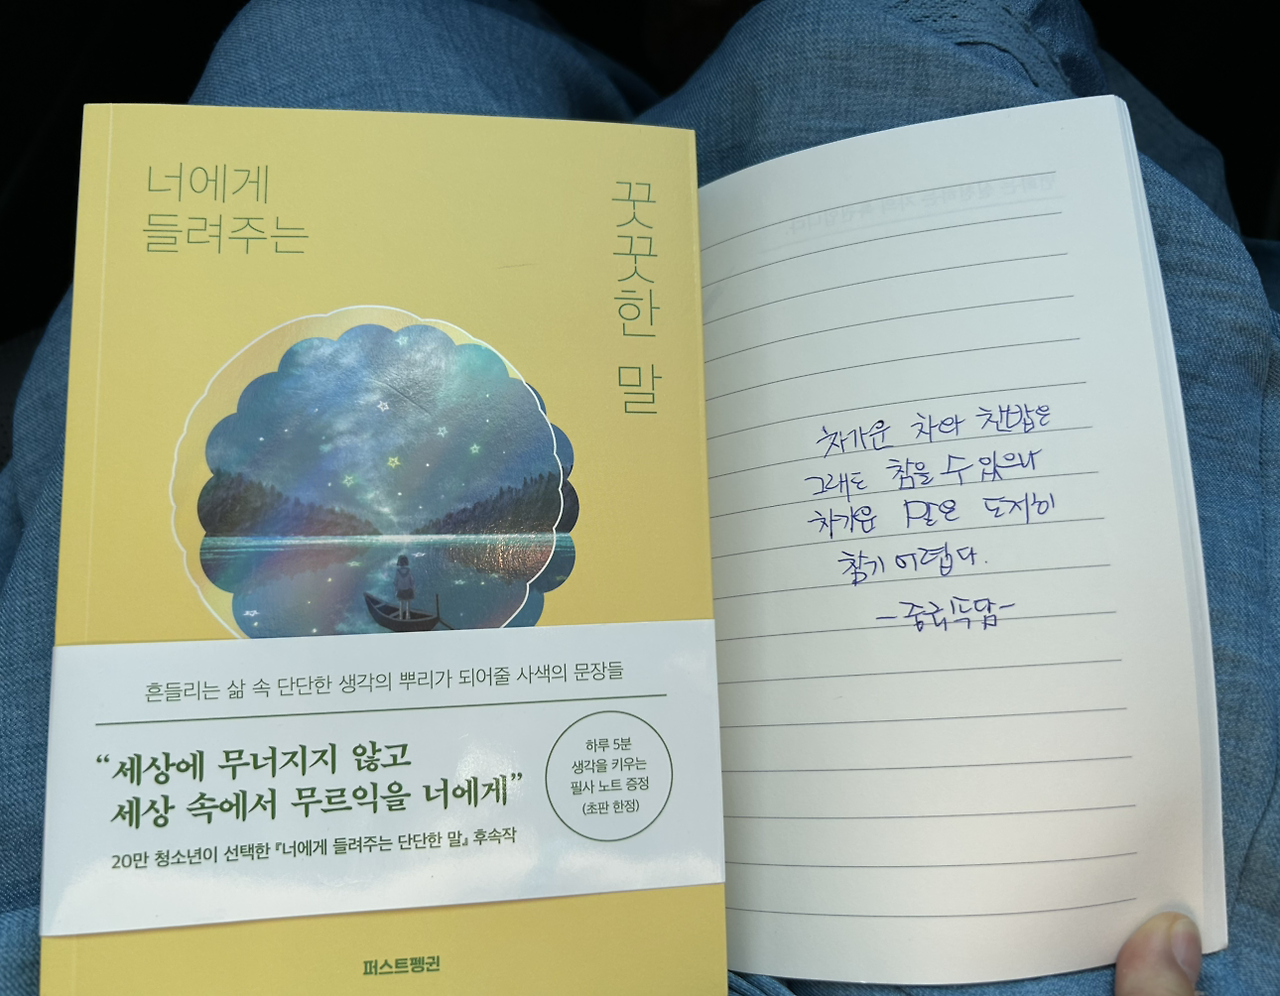 너에게
들려주는
꿋꿋한 말
흔들리는 삶 속 단단한 생각의 뿌리가 되어줄 사색의 문장들
“세상에 무너지지 않고
세상 속에서 무르익을 너에게”
20만 청소년이 선택한 『너에게 들려주는 단단한 말』 후속작
하루 5분
생각을 키우는
필사 노트 증정
(초판 한정)
퍼스트펭귄
차가운 차와 찬밥은
그래도 참을 수 있으나
차가운 말은 도저히
참기 어렵다.
-중국속담-